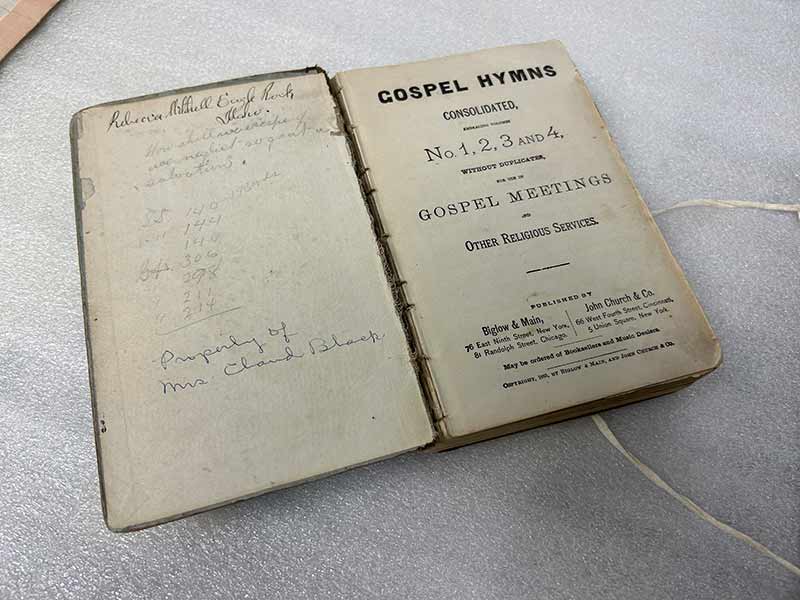 Rebecca Mitchell Eagle Rock
Idaho.
How shall we escape if
we neglect so great
salvation.
S.S. 140
144
140
306
298
211
214
Property of
Mrs. Claud Black
GOSPEL HYMNS
CONSOLIDATED,
EMBRACING VOLUMES
No. 1, 2, 3 AND 4,
WITHOUT DUPLICATES,
FOR USE IN
GOSPEL MEETINGS
AND
OTHER RELIGIOUS SERVICES.
PUBLISHED BY
Biglow & Main,
76 East Ninth Street, New York,
81 Randolph Street, Chicago.
John Church & Co.
66 West Fourth Street, Cincinnati,
5 Union Square, New York.
May be ordered of Booksellers and Music Dealers.
COPYRIGHT, 1883, BY BIGLOW & MAIN, AND JOHN CHURCH & CO.